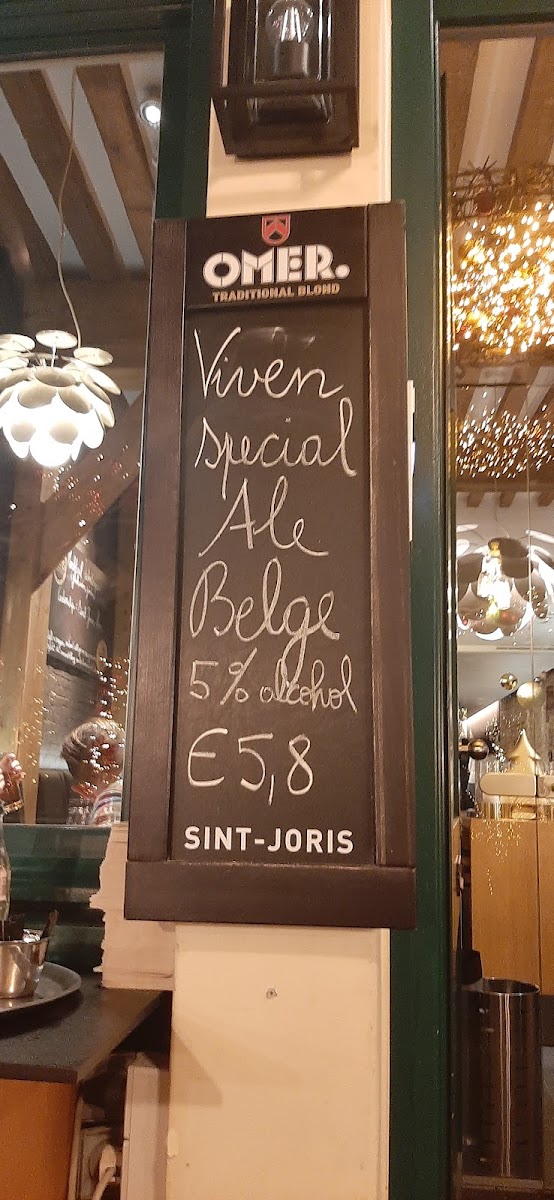 OMER.
TRADITIONAL BLOND
Viven
special
Ale
Belge
5% alcohol
€5,8
SINT-JORIS